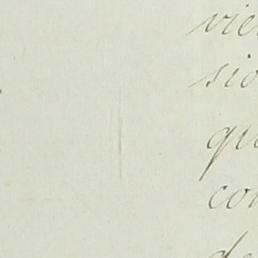 vien
sio
qu
con
de